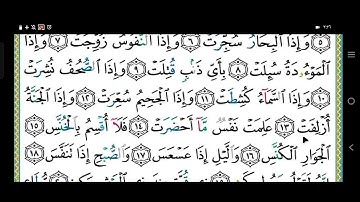 ٥ وَإِذَا ٱلْبِحَارُ سُجِّرَتْ ٦ وَإِذَا ٱلنُّفُوسُ زُوِّجَتْ ٧ وَإِذَا
ٱلْمَوْءُۥدَةُ سُئِلَتْ ٨ بِأَيِّ ذَنۢبٍ قُتِلَتْ ٩ وَإِذَا ٱلصُّحُفُ نُشِرَتْ
١٠ وَإِذَا ٱلسَّمَآءُ كُشِطَتْ ١١ وَإِذَا ٱلْجَحِيمُ سُعِّرَتْ ١٢ وَإِذَا ٱلْجَنَّةُ
أُزْلِفَتْ ١٣ عَلِمَتْ نَفْسٌ مَّآ أَحْضَرَتْ ١٤ فَلَآ أُقْسِمُ بِٱلْخُنَّسِ ١٥
ٱلْجَوَارِ ٱلْكُنَّسِ ١٦ وَٱلَّيْلِ إِذَا عَسْعَسَ ١٧ وَٱلصُّبْحِ إِذَا تَنَفَّسَ ١٨